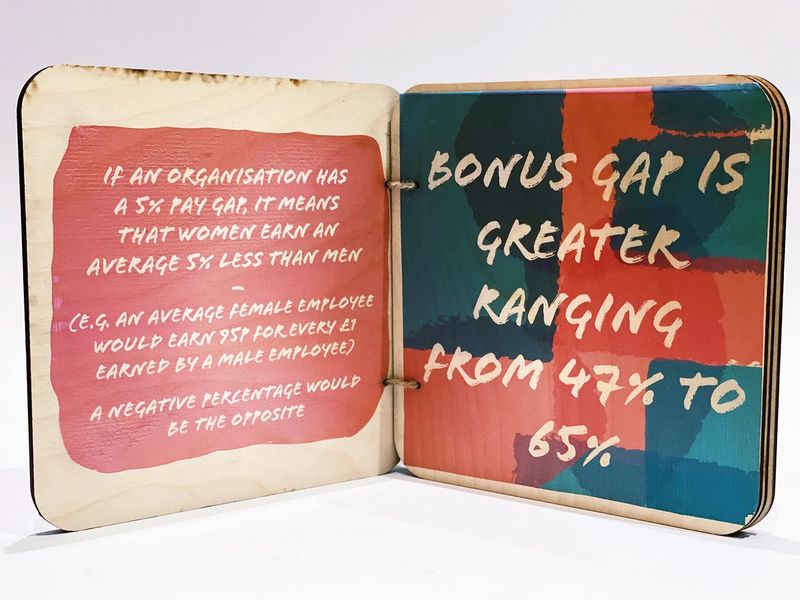 IF AN ORGANISATION HAS
A 5% PAY GAP, IT MEANS
THAT WOMEN EARN AN
AVERAGE 5% LESS THAN MEN
-
(E.G. AN AVERAGE FEMALE EMPLOYEE
WOULD EARN 95P FOR EVERY £1
EARNED BY A MALE EMPLOYEE)
A NEGATIVE PERCENTAGE WOULD
BE THE OPPOSITE
BONUS GAP IS
GREATER
RANGING
FROM 47% TO
65%